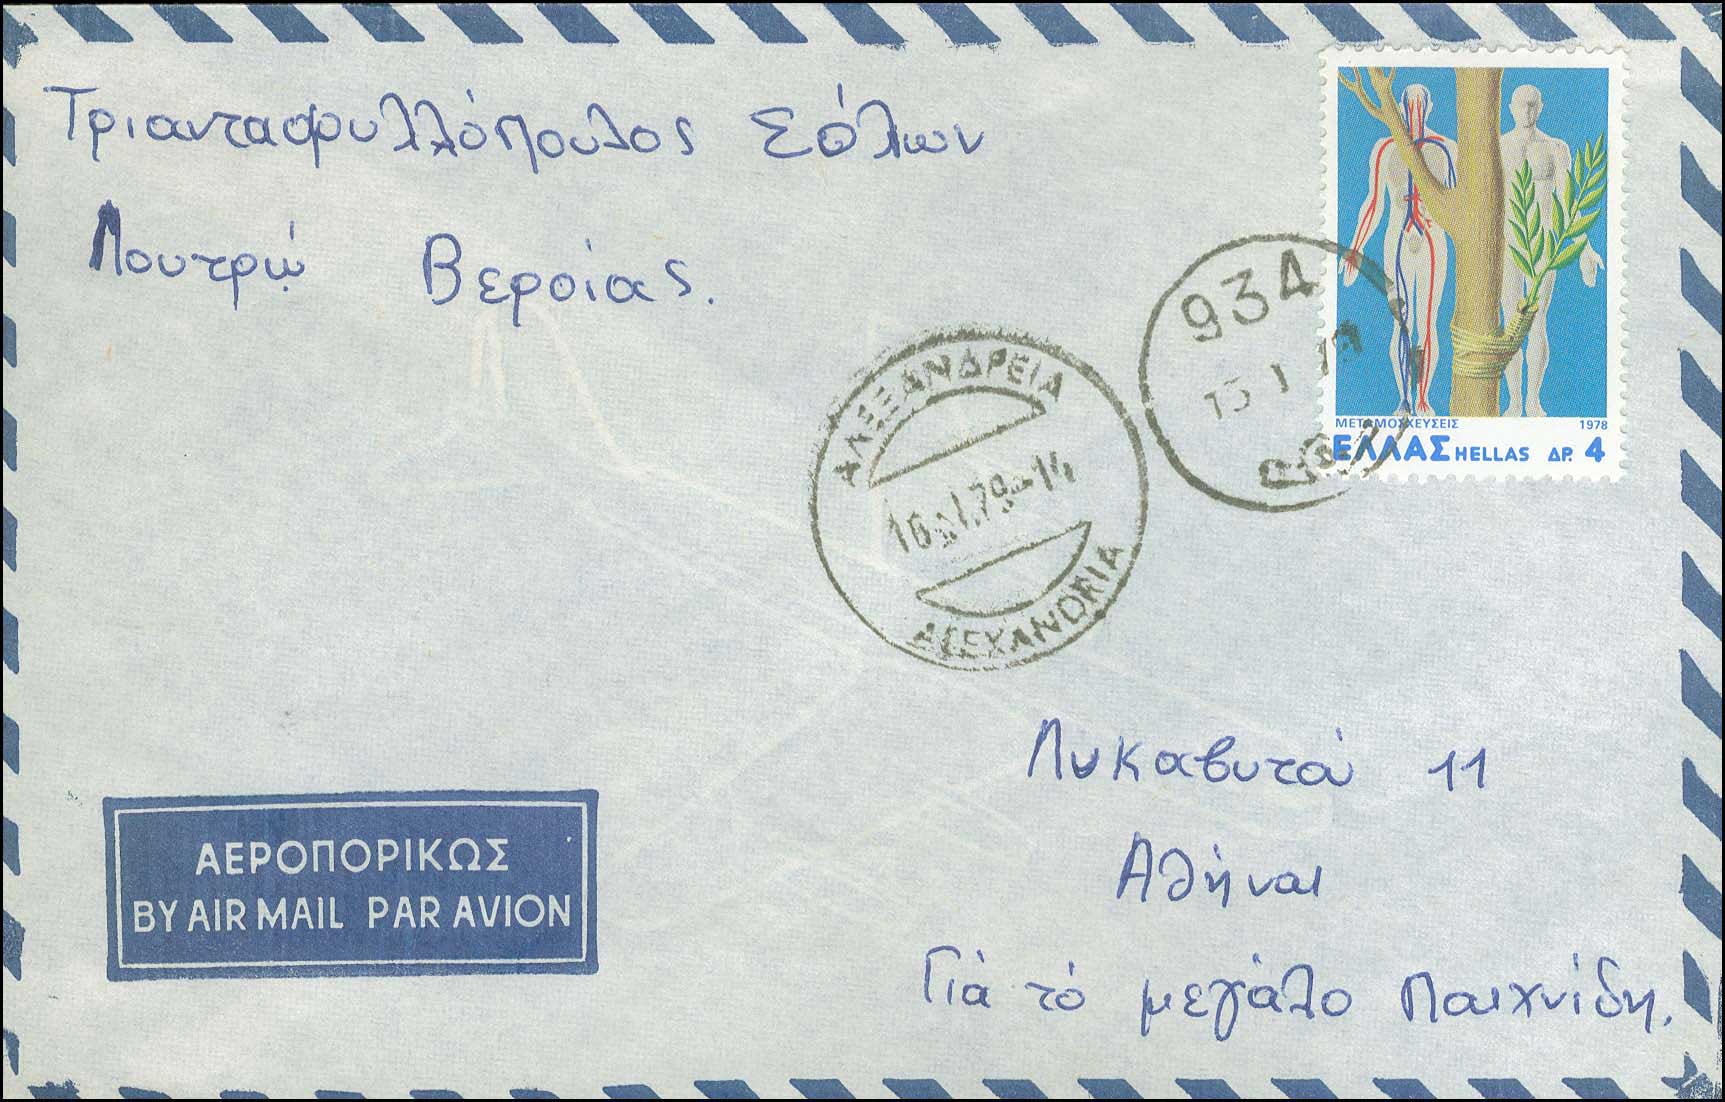 Τριανταφυλλόπουλος Σόλων
Λουτρῴ Βεροίας.
ΜΕΤΑΜΟΣΧΕΥΣΕΙΣ 1978
ΕΛΛΑΣ HELLAS ΔΡ. 4
934
ΑΛΕΞΑΝΔΡΕΙΑ
16.I.79-14
ALEXANDREIA
Λυκαβυτού 11
Αθήναι
Γιά τό μεγάλο Παιχνίδη.
ΑΕΡΟΠΟΡΙΚΩΣ
BY AIR MAIL PAR AVION